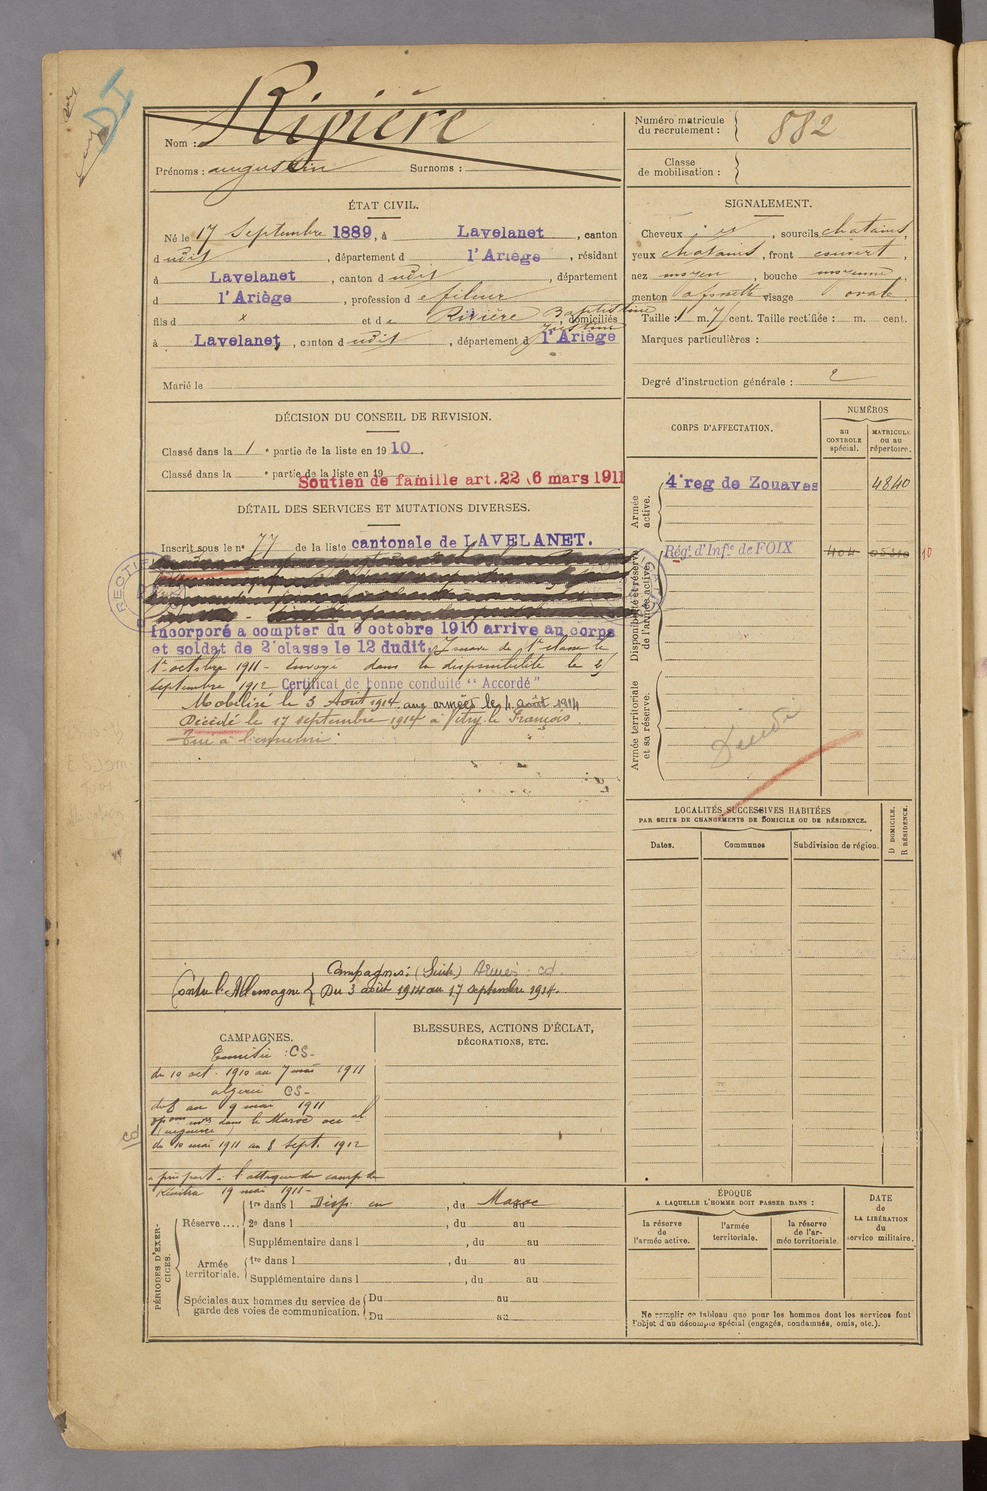 Rivière
Nom :
Prénoms : augustin Surnoms :
Numéro matricule du recrutement : 882
Classe de mobilisation :
ÉTAT CIVIL.
Né le 17 Septembre 1889, à Lavelanet, canton
dudit, département d l'Ariège, résidant
à Lavelanet, canton dudit, département
d l'Ariège, profession d effileur
fils d x et de Rivière Baptistine
Justine domiciliés
à Lavelanet, canton dudit, département d l'Ariège
Marié le
SIGNALEMENT.
Cheveux , sourcils chatains,
yeux chatains, front couvert,
nez moyen, bouche moyenne,
menton visage ovale.
Taille : 1 m. 7 cent. Taille rectifiée : m. cent.
Marques particulières :
Degré d'instruction générale : 2
DÉCISION DU CONSEIL DE REVISION.
Classé dans la 1e partie de la liste en 1910.
Classé dans la e partie de la liste en 19
Soutien de famille art. 22 6 mars 1911
DÉTAIL DES SERVICES ET MUTATIONS DIVERSES.
Inscrit sous le n° 77 de la liste cantonale de LAVELANET.
Incorporé a compter du 9 octobre 1910 arrive au corps
et soldat de 2e classe le 12 dudit, Zouave de 1e classe le
1er octobre 1911 - Envoyé dans la disponibilité le
septembre 1912 Certificat de bonne conduite "Accordé"
Mobilisé le 3 Août 1914 aux armées le 4 août 1914
Décédé le 17 septembre 1914 à Vitry le François.
Tué à l'ennemi.
Campagnes : (Suite)
Contre l'Allemagne { Du 3 août 1914 au 17 septembre 1914.
CORPS D'AFFECTATION.
NUMÉROS
au CONTROLE spécial.
MATRICULE ou au répertoire.
Armée active.
4e reg de Zouaves 4840
Disponibilité et réserve de l'armée active.
Rég. d'Infie de FOIX 404
Armée territoriale et sa réserve.
LOCALITÉS SUCCESSIVES HABITÉES
PAR SUITE DE CHANGEMENTS DE DOMICILE OU DE RÉSIDENCE.
Dates. Communes Subdivision de région.
D DOMICILE.
R RÉSIDENCE.
CAMPAGNES.
Tunisie : CS-
du 10 oct. 1910 au 7 mai 1911
algérie CS-
du 8 au 9 mai 1911
dans le Maroc occal
du 10 mai 1911 au 8 Sept. 1912
a pris part à l'attaque du camp de
Kénitra 19 mai 1911-
BLESSURES, ACTIONS D'ÉCLAT,
DÉCORATIONS, ETC.
PÉRIODES D'EXERCICES.
Réserve....
1re dans l Disp. au , du Maroc au
2e dans l , du au
Supplémentaire dans l , du au
Armée territoriale.
1re dans l , du au
Supplémentaire dans l , du au
Spéciales aux hommes du service de garde des voies de communication.
Du au
Du au
ÉPOQUE
A LAQUELLE L'HOMME DOIT PASSER DANS :
la réserve de l'armée active.
l'armée territoriale.
la réserve de l'armée territoriale.
DATE
de
LA LIBÉRATION
du
service militaire.
Ne remplir ce tableau que pour les hommes dont les services font
l'objet d'un décompte spécial (engagés, condamnés, omis, etc.).